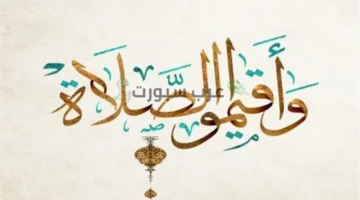 وَأَقِيمُوا الصَّلَاةَ
عرب سبورت